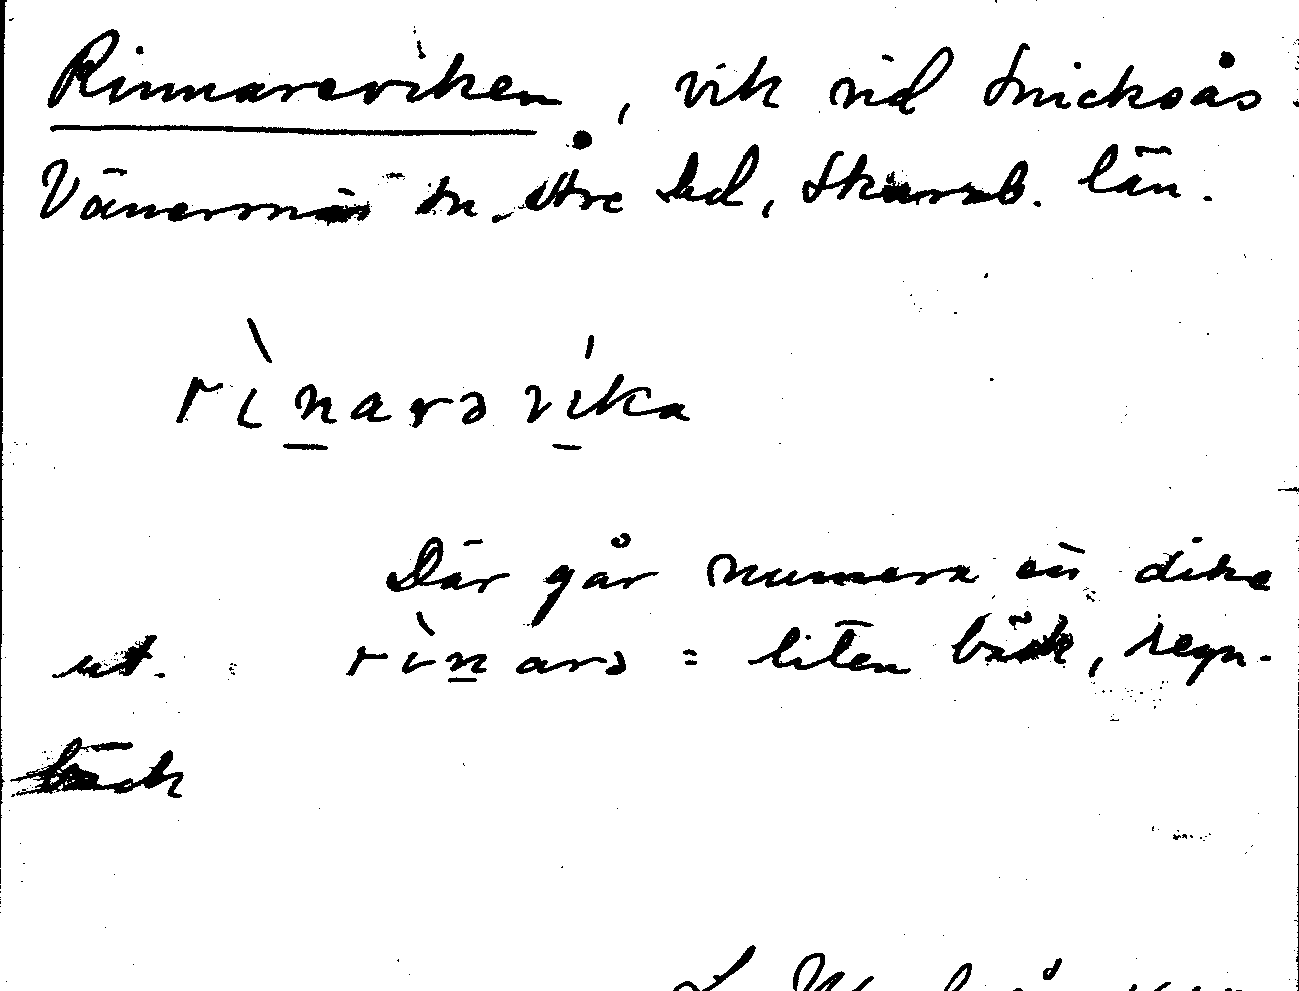 Rinnareviken, vik vid Snicksås.
Vänersnäs sn. Åse hd, Skarab. län.
rìnarəvíka
Där går numera en dike
ut. rìnarə = liten bäck, regn-
bäck